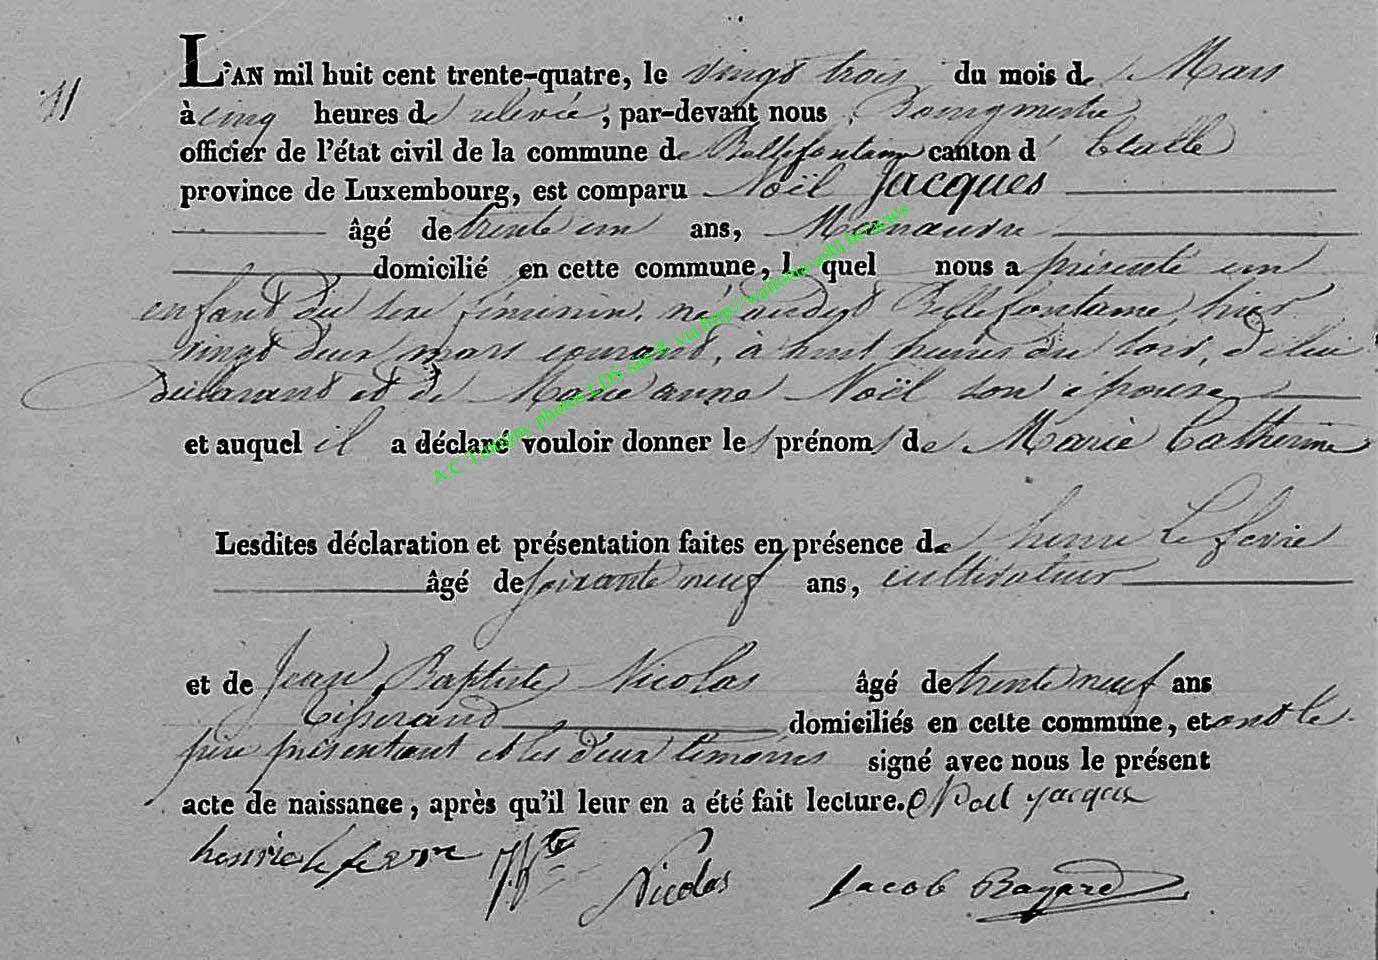 11
L'AN mil huit cent trente-quatre, le vingt trois du mois de Mars
à cinq heures de relevée, par-devant nous Bourgmestre
officier de l'état civil de la commune de Bellefontaine canton d' Etalle
province de Luxembourg, est comparu Noël Jacques
âgé de trente un ans, Manœuvre
domicilié en cette commune, lequel nous a présenté un
enfant du sexe féminin, né audit Bellefontaine hier
vingt deux mars courant, à huit heures du soir, de lui
Déclarant et de Marie anne Noël son épouse
et auquel il a déclaré vouloir donner les prénoms de Marie Catherine
Lesdites déclaration et présentation faites en présence de henri Lefevre
âgé de soixante neuf ans, cultivateur
et de Jean Baptiste Nicolas âgé de trente neuf ans
Tisserand domiciliés en cette commune, et ont le
père présentant et les deux témoins signé avec nous le présent
acte de naissance, après qu'il leur en a été fait lecture. Noel jacques
henri le fevre J. Bte Nicolas Jacob Bayard
A.C Thomy photos LDS site & via http://wallonia-asbl.be/actes